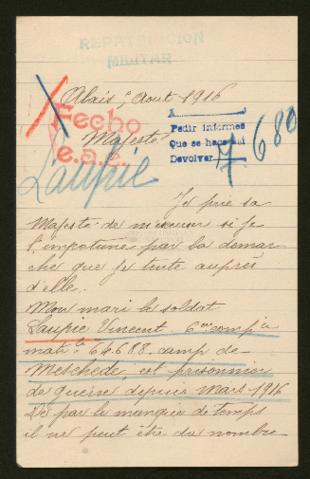 REPATRIACION
MILITAR
Alais, Aout 1916
Fecho
e.a.e.
Majesté
A
Pedir informes
Que se haga aui
Devolver
7680
Laupie
Je prie sa
Majesté de m'excuser si je
l'importune par la demar
che que je tente auprès
d'elle.
Mon mari le soldat
Laupie Vincent 6me comp ie
mat le 64.688. camp de
Meschede, est prisonnier
de guerre depuis Mars 1916
De par le manque de temps
il ne peut être du nombre